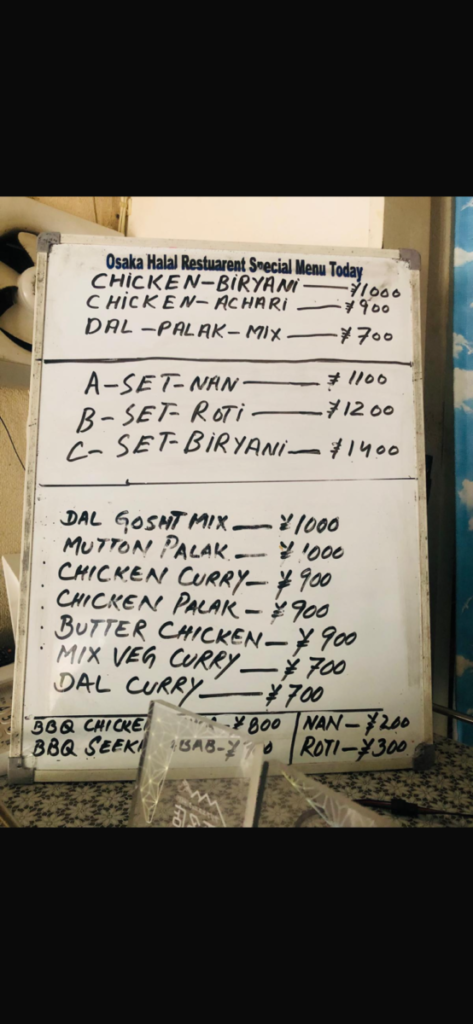 Osaka Halal Restuarent Special Menu Today
CHICKEN-BIRYANI — ¥1000
CHICKEN-ACHARI — ¥900
DAL-PALAK-MIX — ¥700
A-SET-NAN — ¥1100
B-SET-ROTI — ¥1200
C-SET-BIRYANI — ¥1400
DAL GOSHT MIX — ¥1000
MUTTON PALAK — ¥1000
CHICKEN CURRY — ¥900
CHICKEN PALAK — ¥900
BUTTER CHICKEN — ¥900
MIX VEG CURRY — ¥700
DAL CURRY — ¥700
BBQ CHICKE ¥800 NAN — ¥200
BBQ SEEK BAB-¥ ROTI — ¥300